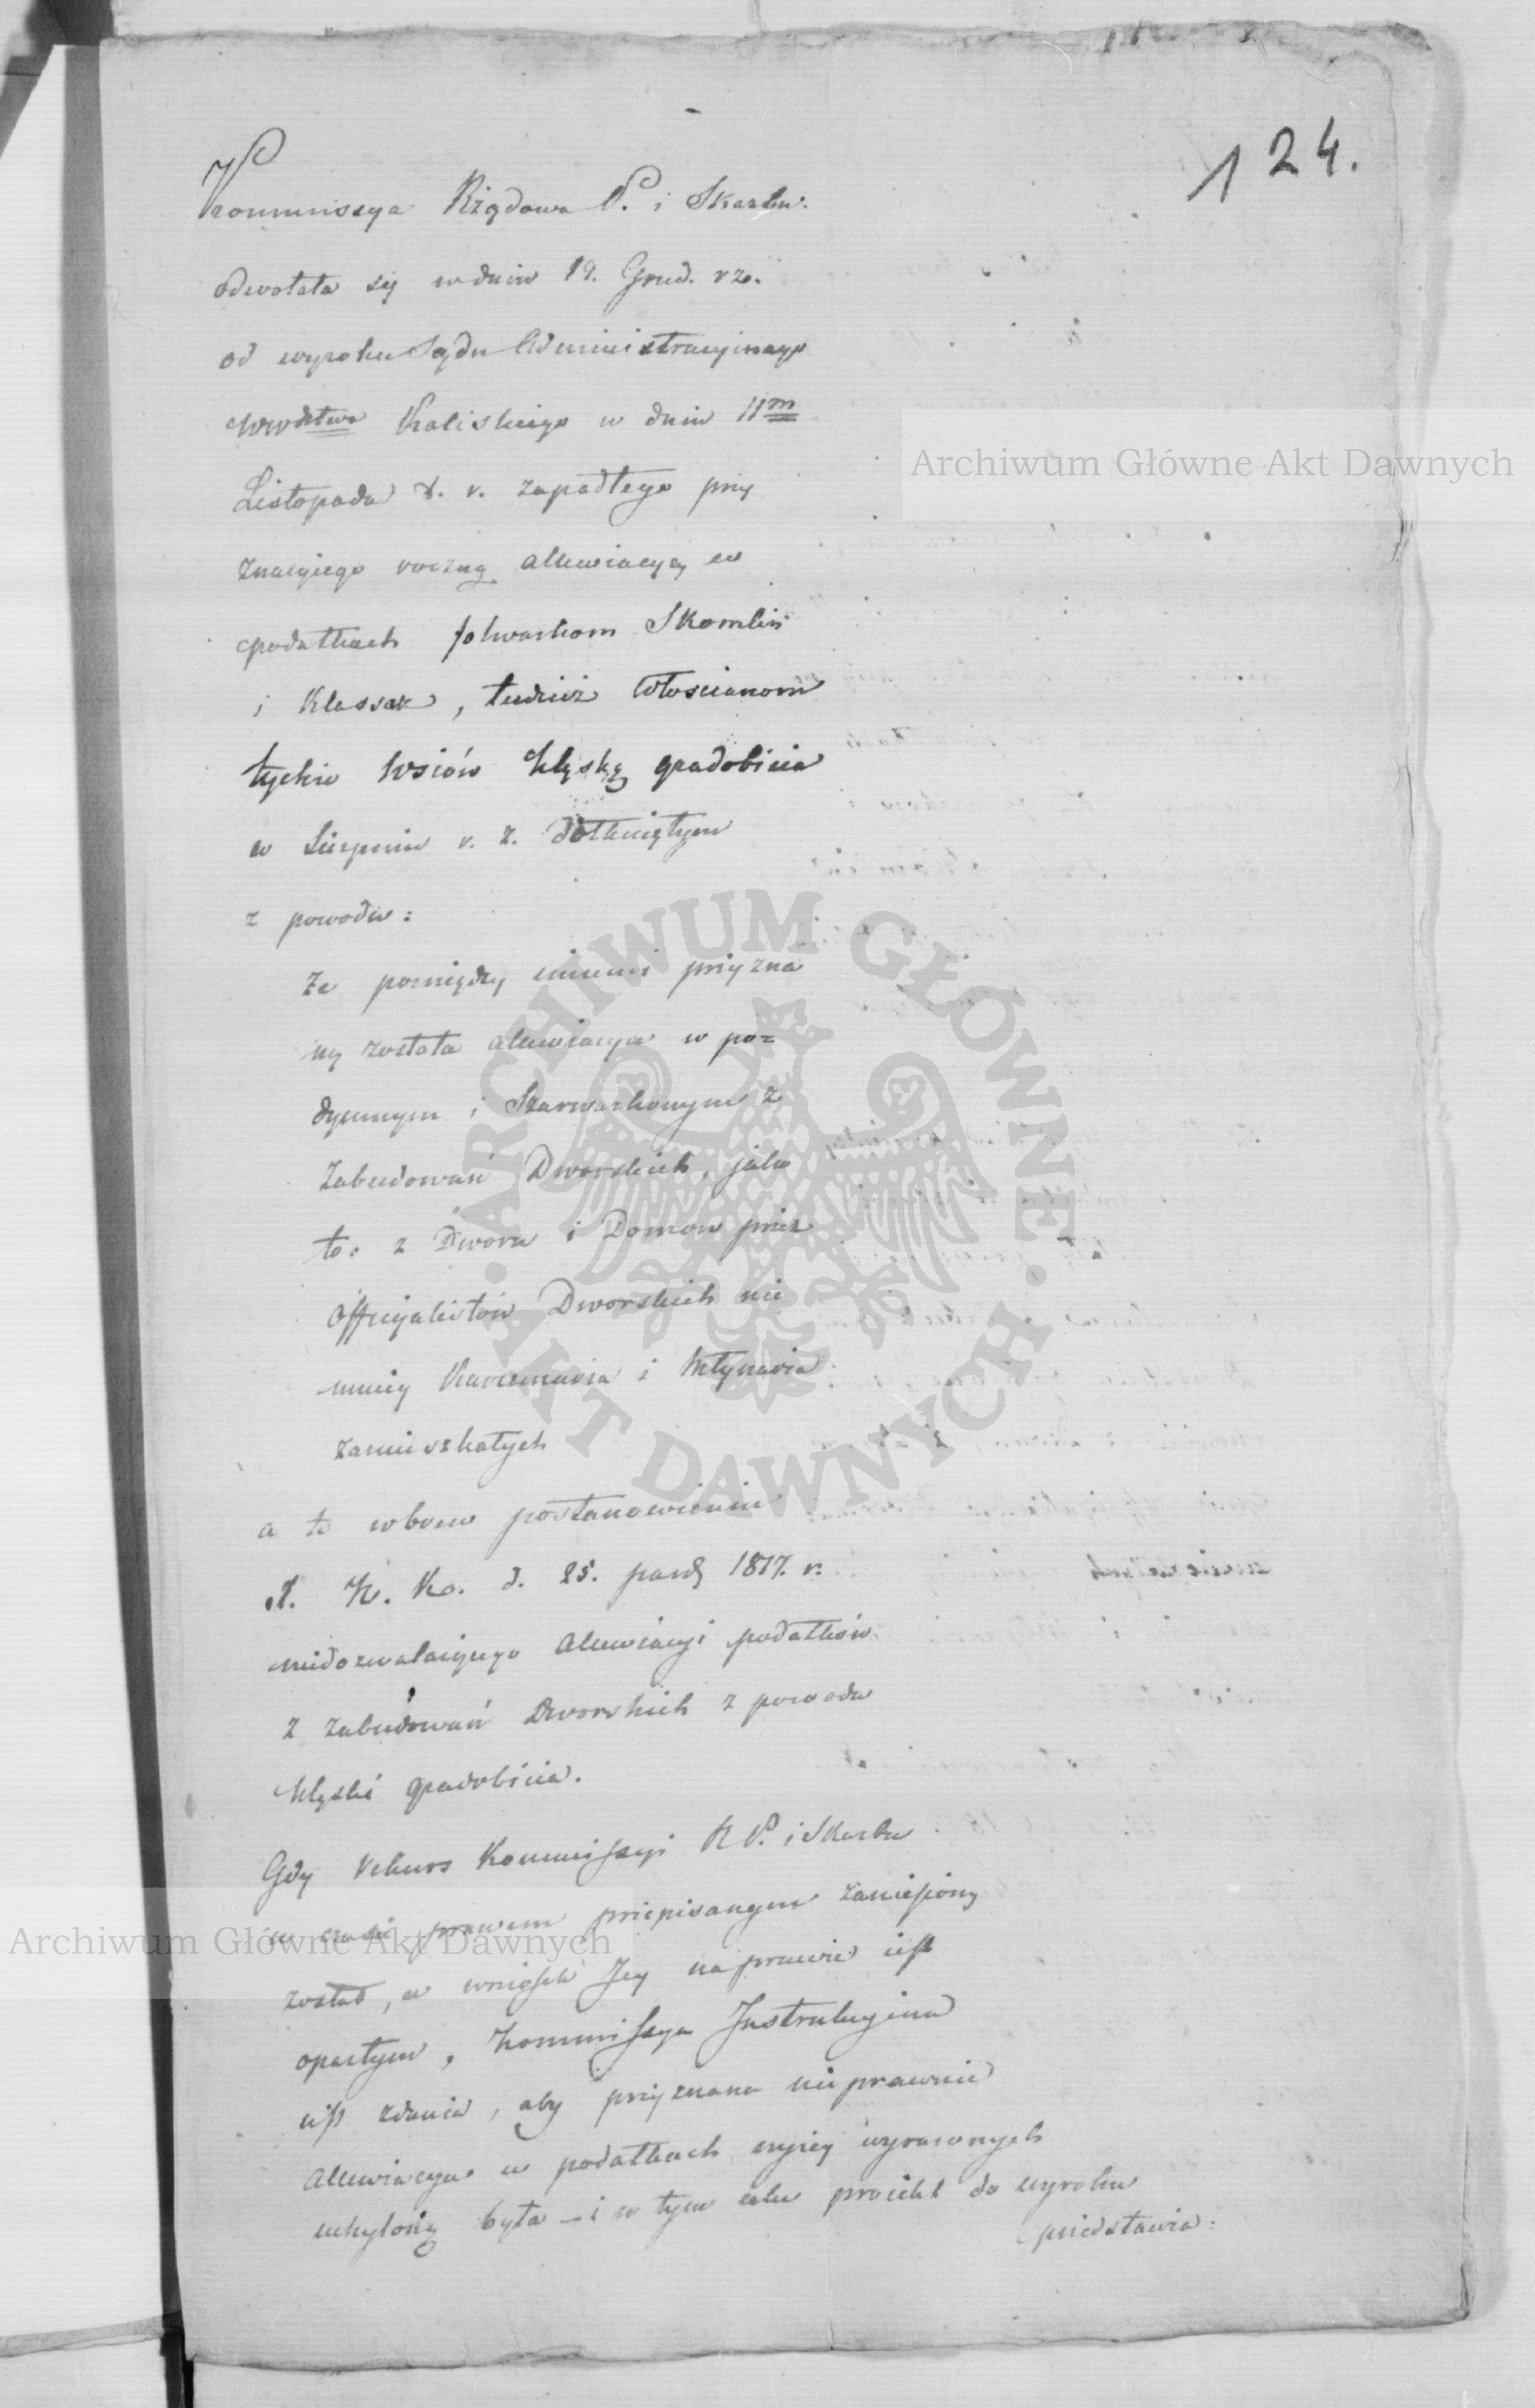 124.
Kommissya Rządowa P. i Skarbu.
odwołała się w dniu 19. Grud. rz.
od wyroku Sądu Administracyinego
Wwdztwa Kaliskiego w dniu 11m
Listopada t. r. zapadłego przy
znaiącego roczną allewiacyą w
podatkach folwarkom Skomlin
i Klassak, tudzież Włościanom
tychże wsiów klęską gradobicia
w Sierpniu r. z. dotkniętym
z powodu:
że pomiędzy innemi przyzna
ną została alewiacya w po=
dymnym i Szarwarkowym z
zabudowań Dworskich, jako
to: z Dworu i Domow przez
officyalistów Dworskich nie
mniey Karczmarza i Młynarza
zamieszkałych
a to wbrew postanowieniu
X. N. Ko. d. 25. paźdz 1817. r.
niedozwalaiącego alewiacyi podatków
z zabudowań Dworskich z powodu
klęski gradobicia.
Gdy rekurs Kommissyi R P. i Skarbu
w czasie prawem przepisanym zaniesiony
został, a wniosek Jey na prawie iest
opartym, Kommissya Instrukcyina
iest zdania, aby przyznana nieprawnie
allewiacya w podatkach wyżey wyrażonych
uchyloną była – i w tym celu proiekt do wyroku
przedstawia:
Archiwum Główne Akt Dawnych
ARCHIWUM GŁÓWNE
• AKT DAWNYCH •
Archiwum Główne Akt Dawnych